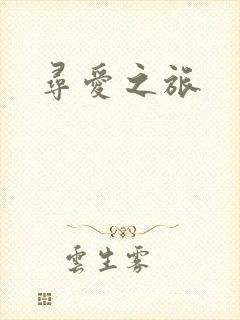 尋愛之旅
雲生雾